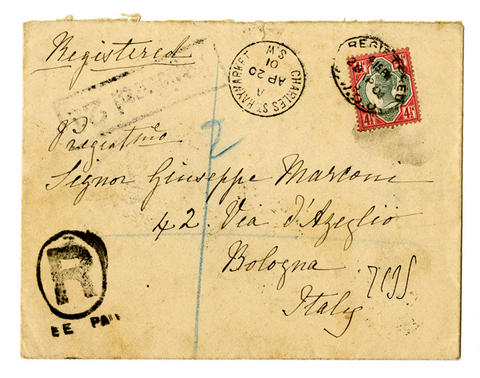 Registered
CHARLES ST HAYMARKET S.W
A
AP 20
01
REGISTERED
4½ 4½
2
Signor Giuseppe Marconi
42 Via d'Azeglio
Bologna
Italy
R
EE PAI